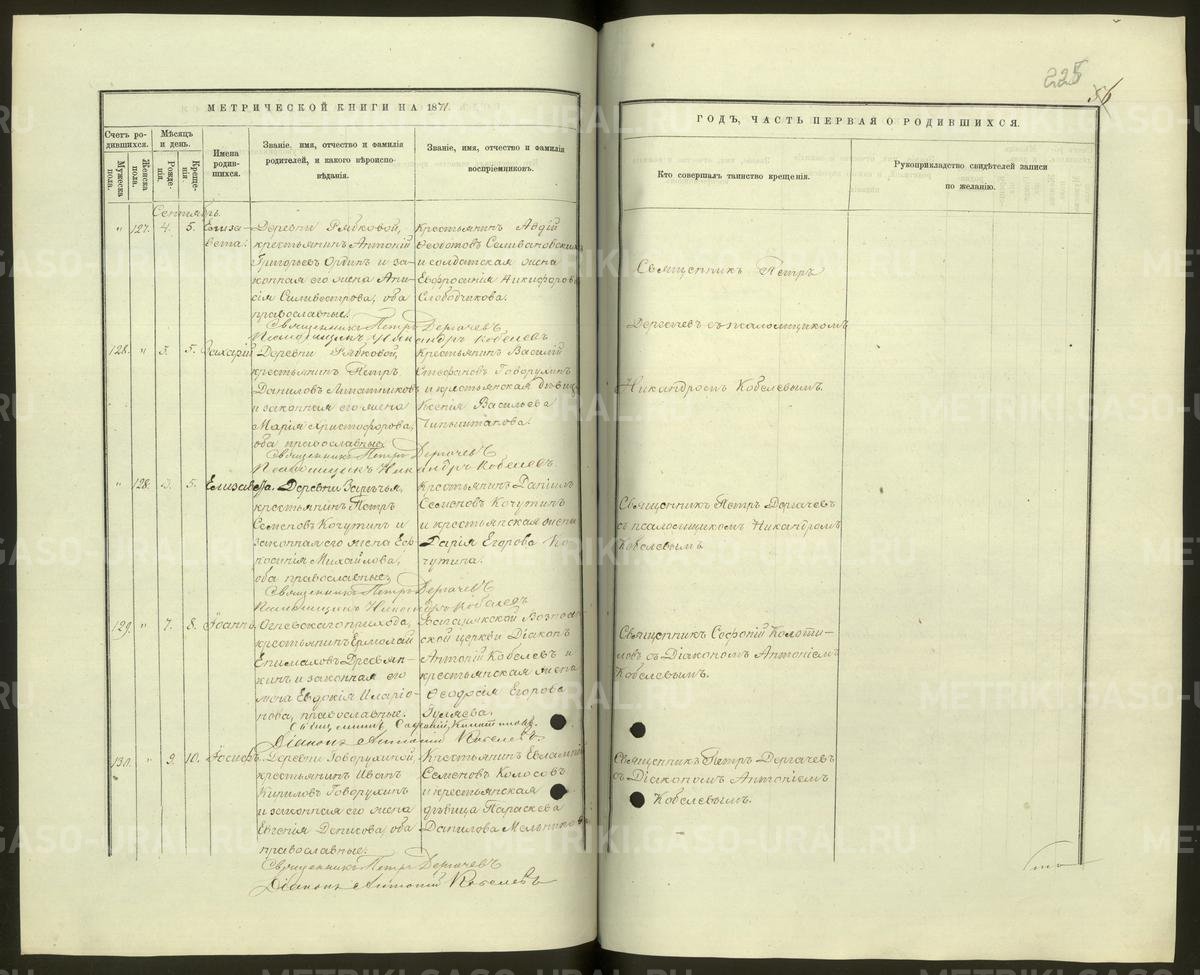 225
МЕТРИЧЕСКОЙ КНИГИ НА 1871
ГОДЪ, ЧАСТЬ ПЕРВАЯ О РОДИВШИХСЯ.
Счетъ родившихся.
Мужеска пола.
Женска пола.
Мѣсяцъ и день.
Рожденія.
Крещенія.
Имена родившихся.
Званіе, имя, отчество и фамилія
родителей, и какого вѣроиспо-
вѣданія.
Званіе, имя, отчество и фамилія
воспріемниковъ.
Кто совершалъ таинство крещенія.
Рукоприкладство свидѣтелей записи
по желанію.
Сентябрь.
" 127. 4. 5. Елиза-
вета.
Деревни Рябковой,
крестьянинъ Антоній
Григорьевъ Ординъ и за-
конная его жена Ани-
сія Силивестрова, оба
православные.
Крестьянинъ Авдій
Ѳеодотовъ Селивановскихъ
и солдатская жена
Евфросинія Никифорова
Слободчикова.
Священникъ Петръ
Дергачевъ съ псаломщикомъ
Никандромъ Кобелевымъ.
Священникъ Петръ Дергачевъ
Псаломщикъ Никандръ Кобелевъ
128. " 3. 5. Захарій
Деревни Рябковой,
крестьянинъ Петръ
Даниловъ Липатниковъ
и законная его жена
Марія Христофорова,
оба православные.
Крестьянинъ Василій
Стефановъ Говорухинъ
и крестьянская дѣвица
Ксенія Васильева
Священникъ Петръ Дергачевъ
Псаломщикъ Никандръ Кобелевъ.
" 128. 3. 5. Елизавета.
Деревни Зарѣчья,
крестьянинъ Петръ
Семеновъ Кочутинъ и
законная его жена Евф-
росинія Михайлова,
оба православные.
Крестьянинъ Даніилъ
Семеновъ Кочутинъ
и крестьянская жена
Дарія Егорова Ко-
чутина.
Священникъ Петръ Дергачевъ
съ псаломщикомъ Никандромъ
Кобелевымъ
Священникъ Петръ Дергачевъ
Псаломщикъ Никандръ Кобелевъ
129. " 7. 8. Іоаннъ.
Огневскаго прихода,
крестьянинъ Ермолай
Древян-
кинъ и законная его
жена Евдокія Иларіо-
нова, православные.
Багарякской Вознесен
ской церкви Діаконъ
Антоній Кобелевъ и
крестьянская жена
Ѳеодосія Егорова
Гуляева.
Священникъ Софоній Колоти-
ловъ съ Діакономъ Антоніемъ
Кобелевымъ.
Священникъ Софоній Колотиловъ.
Діаконъ Антоній Кобелевъ.
130. " 9. 10. Іосифъ.
Деревни Говорухиной,
крестьянинъ Иванъ
Кириловъ Говорухинъ
и законная его жена
Евгенія Денисова, оба
православные.
Крестьянинъ Евлампій
Семеновъ Колосовъ
и крестьянская
дѣвица Параскева
Данилова Мельникова
Священникъ Петръ Дергачевъ
съ Діакономъ Антоніемъ
Кобелевымъ.
Священникъ Петръ Дергачевъ
Діаконъ Антоній Кобелевъ
METRIKI.GASO-URAL.RU